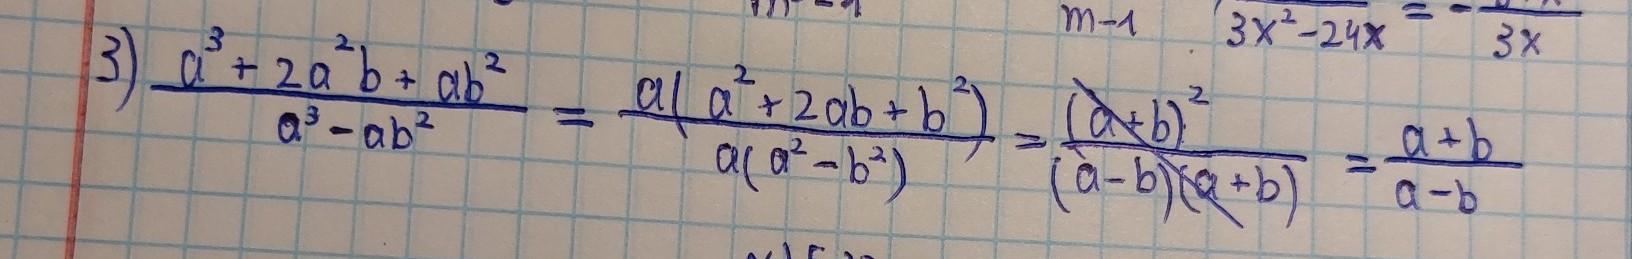 m-1 3x²-24x = - 3x
3) a³+2a²b+ab² / a³-ab² = a(a²+2ab+b²) / a(a²-b²) = (a+b)² / (a-b)(a+b) = a+b / a-b